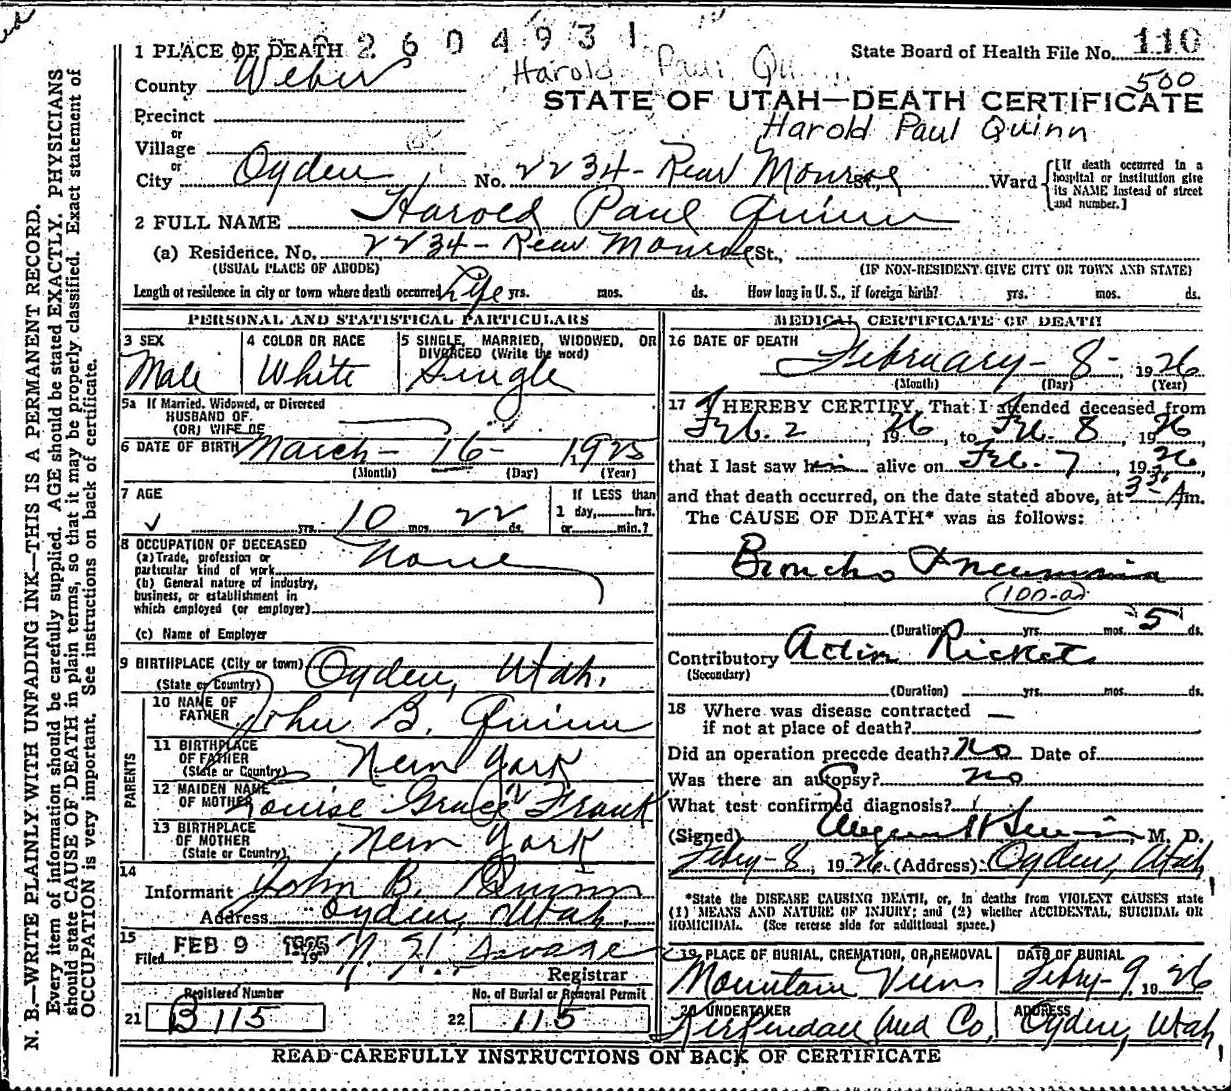 2604931
1 PLACE OF DEATH
State Board of Health File No. 110
County Weber
Harold Paul Qu
500
STATE OF UTAH—DEATH CERTIFICATE
Precinct
Harold Paul Quinn
or
Village
or
City Ogden No. 2234- Rear Monroe St., Ward
[If death occurred in a hospital or institution give its NAME instead of street and number.]
2 FULL NAME Harold Paul Quinn
(a) Residence. No. 2234- Rear Monroe St.,
(USUAL PLACE OF ABODE) (IF NON-RESIDENT GIVE CITY OR TOWN AND STATE)
Length of residence in city or town where death occurred Life yrs. mos. ds. How long in U. S., if foreign birth? yrs. mos. ds.
PERSONAL AND STATISTICAL PARTICULARS
3 SEX
Male
4 COLOR OR RACE
White
5 SINGLE, MARRIED, WIDOWED, OR
DIVORCED (Write the word)
Single
5a If Married, Widowed, or Divorced
HUSBAND OF
(OR) WIFE OF
6 DATE OF BIRTH March- 16- 1925
(Month) (Day) (Year)
7 AGE
yrs. 10 mos. 22 ds.
If LESS than
1 day, hrs.
or min.?
8 OCCUPATION OF DECEASED
(a) Trade, profession or
particular kind of work None
(b) General nature of industry,
business, or establishment in
which employed (or employer)
(c) Name of Employer
9 BIRTHPLACE (City or town) Ogden, Utah.
(State or Country)
PARENTS
10 NAME OF
FATHER John B. Quinn
11 BIRTHPLACE
OF FATHER
(State or Country) New York
12 MAIDEN NAME
OF MOTHER Louise Grace Frank
13 BIRTHPLACE
OF MOTHER
(State or Country) New York
14
Informant John B. Quinn
Address Ogden, Utah
15
Filed FEB 9 19
Registrar
Registered Number
21 B 115
No. of Burial or Removal Permit
22 115
MEDICAL CERTIFICATE OF DEATH
16 DATE OF DEATH
February- 8- 1926
(Month) (Day) (Year)
17 I HEREBY CERTIFY, That I attended deceased from
Feb. 2, 1926, to Feb. 8, 1926
that I last saw him alive on Feb. 7, 1926
and that death occurred, on the date stated above, at 3 30 A m.
The CAUSE OF DEATH* was as follows:
Broncho Pneumonia
(100-a)
(Duration) yrs. mos. 5 ds.
Contributory Actin Rickets
(Secondary)
(Duration) yrs. mos. ds.
18 Where was disease contracted —
if not at place of death?
Did an operation precede death? no Date of
Was there an autopsy? no
What test confirmed diagnosis?
(Signed) M. D.
Febry-8, 1926. (Address) Ogden, Utah,
*State the DISEASE CAUSING DEATH, or, in deaths from VIOLENT CAUSES state
(1) MEANS AND NATURE OF INJURY; and (2) whether ACCIDENTAL, SUICIDAL OR
HOMICIDAL. (See reverse side for additional space.)
19 PLACE OF BURIAL, CREMATION, OR REMOVAL
Mountain View
DATE OF BURIAL
Febry-9, 1926
20 UNDERTAKER
Kirkendall Und Co,
ADDRESS
Ogden, Utah,
READ CAREFULLY INSTRUCTIONS ON BACK OF CERTIFICATE
N. B.—WRITE PLAINLY, WITH UNFADING INK—THIS IS A PERMANENT RECORD.
Every item of information should be carefully supplied. AGE should be stated EXACTLY. PHYSICIANS
should state CAUSE OF DEATH in plain terms, so that it may be properly classified. Exact statement of
OCCUPATION is very important. See instructions on back of certificate.